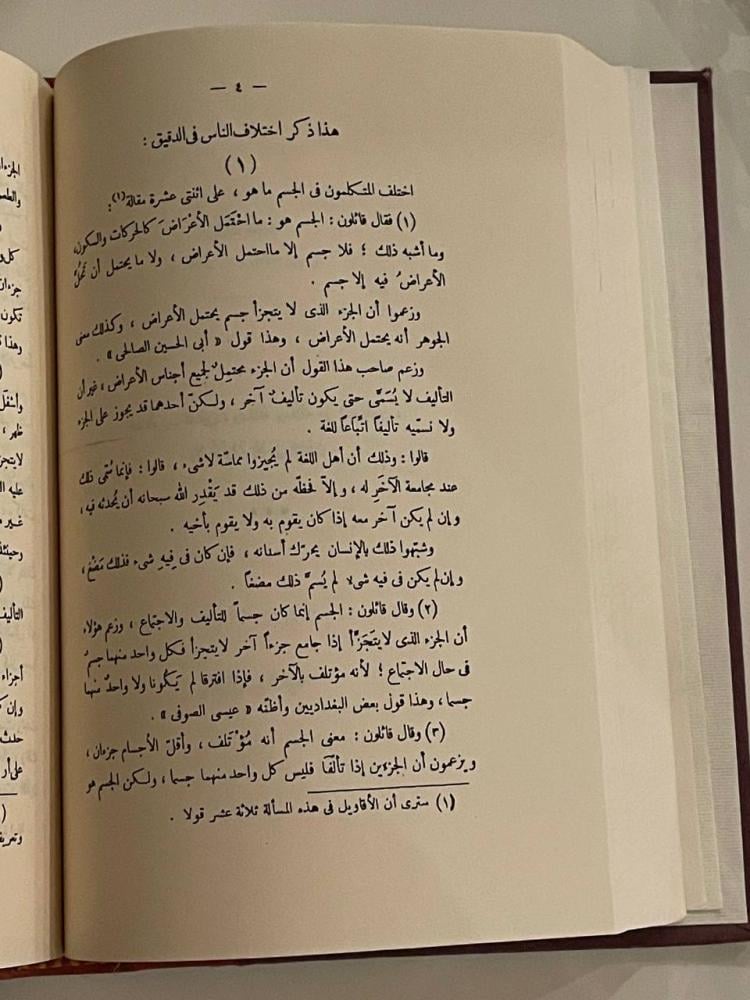 — ٤ —
هذا ذكر اختلاف الناس فى الدقيق :
( ١ )
اختلف المتكلمون فى الجسم ما هو ، على اثنتى عشرة مقالة(١) :
(١) فقال قائلون : الجسم هو : ما احْتَمَل الأعْرَاضَ كالحركات والسكون،
وما أشبه ذلك ؛ فلا جسم إلا ما احتمل الأعراض ، ولا ما يحتمل أن تَحُلَّ
الأعراضُ فيه إلا جسم .
وزعموا أن الجزء الذى لا يتجزأ جسم يحتمل الأعراض ، وكذلك معنى
الجوهر أنه يحتمل الأعراض ، وهذا قول « أبى الحسين الصالحى » .
وزعم صاحب هذا القول أن الجزء محتمِلٌ لجميع أجناس الأعراض ، غير أن
التأليف لا يُسَمَّى حتى يكون تأليفٌ آخر ، ولكنّ أحدهما قد يجوز على الجزء
ولا نسمّيه تأليفًا اتِّبَاعًا للغة .
قالوا : وذلك أن أهل اللغة لم يُجِيزوا مماسّة لاشىء ، قالوا : فإنما سُمِّى ذلك
عند مجامعة الآخَرِ له ، وإلاّ فحظّه من ذلك قد يَقْدِر الله سبحانه أن يُحْدثه فيه ،
وإن لم يكن آخر معه إذا كان يقوم به ولا يقوم بأخيه .
وشبّهوا ذلك بالإنسان يحرّك أسنانه ، فإن كان فى فِيهِ شىء فذلك مَضْغ ،
وإن لم يكن فى فيه شىء لم يُسمَّ ذلك مضغا .
(٢) وقال قائلون : الجسم إنما كان جسماً للتأليف والاجتماع ، وزعم هؤلاء
أن الجزء الذى لا يتَجَزَّأ إذا جامع جزءاً آخر لا يتجزأ فكل واحد منهما جسمٌ
فى حال الاجتماع ؛ لأنه مؤتلف بالآخر ، فإذا افترقا لم يَكُونا ولا واحدٌ منهما
جسما ، وهذا قول بعض البغداديين وأظنّه « عيسى الصوفى » .
(٣) وقال قائلون : معنى الجسم أنه مُؤْتلف ، وأقلّ الأجسام جزءان ،
ويزعمون أن الجزءين إذا تألّفا فليس كل واحد منهما جسما ، ولكن الجسم هو
(١) سترى أن الأقاويل فى هذه المسألة ثلاثة عشر قولا .